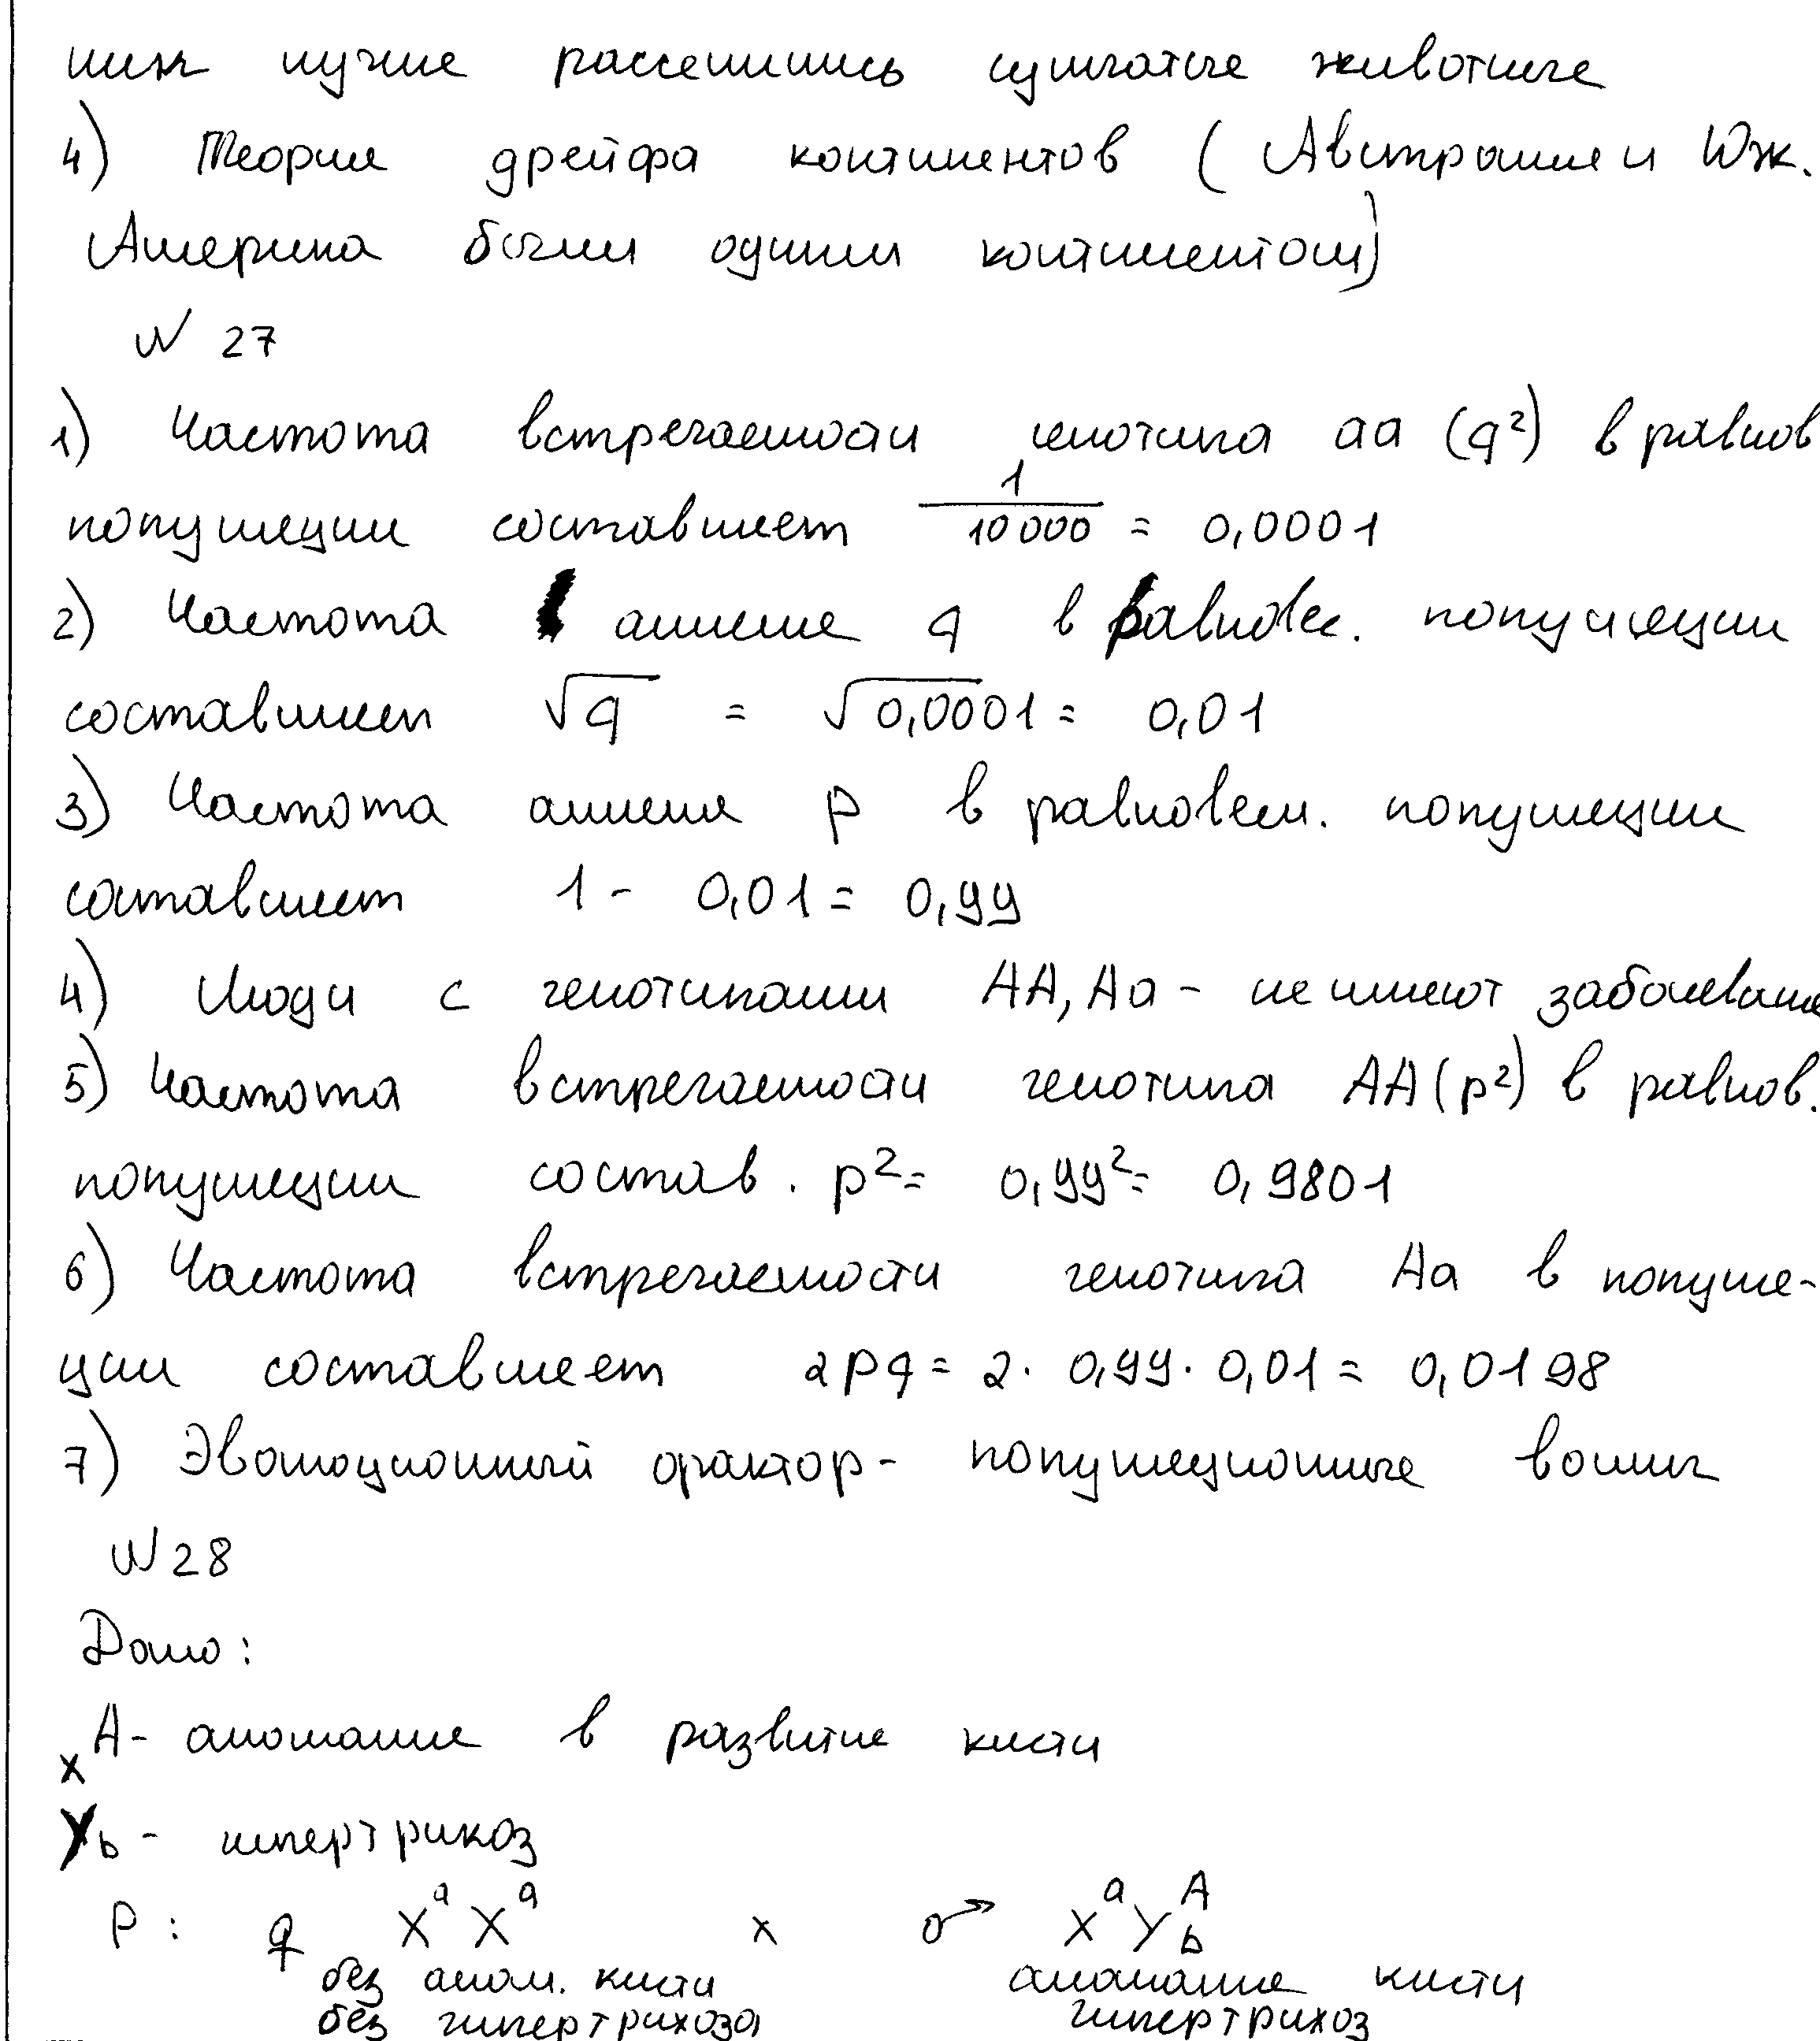 них лучше расселились сумчатые животные
4) Теория дрейфа континентов (Австралия и Юж.
Америка были одним континентом)
N 27
1) Частота встречаемости генотипа aa (q²) в равнов
популяции составляет 1/10000 = 0,0001
2) Частота аллеля q в равновес. популяции
составляет √q = √0,0001 = 0,01
3) Частота аллеля p в равновесн. популяции
составляет 1 - 0,01 = 0,99
4) Люди с генотипами AA, Aa - не имеют заболевание
5) Частота встречаемости генотипа AA (p²) в равнов.
популяции состав. p² = 0,99² = 0,9801
6) Частота встречаемости генотипа Aa в популя-
ции составляет 2pq = 2 · 0,99 · 0,01 = 0,0198
7) Эволюционный фактор - популяционные волны
N 28
Дано:
X A - аномалие в развитие кисти
Y b - гипертрихоз
P: ♀ XᵃXᵃ x ♂ XᵃYᴬb
без аном. кисти аномалия кисти
без гипертрихоза гипертрихоз